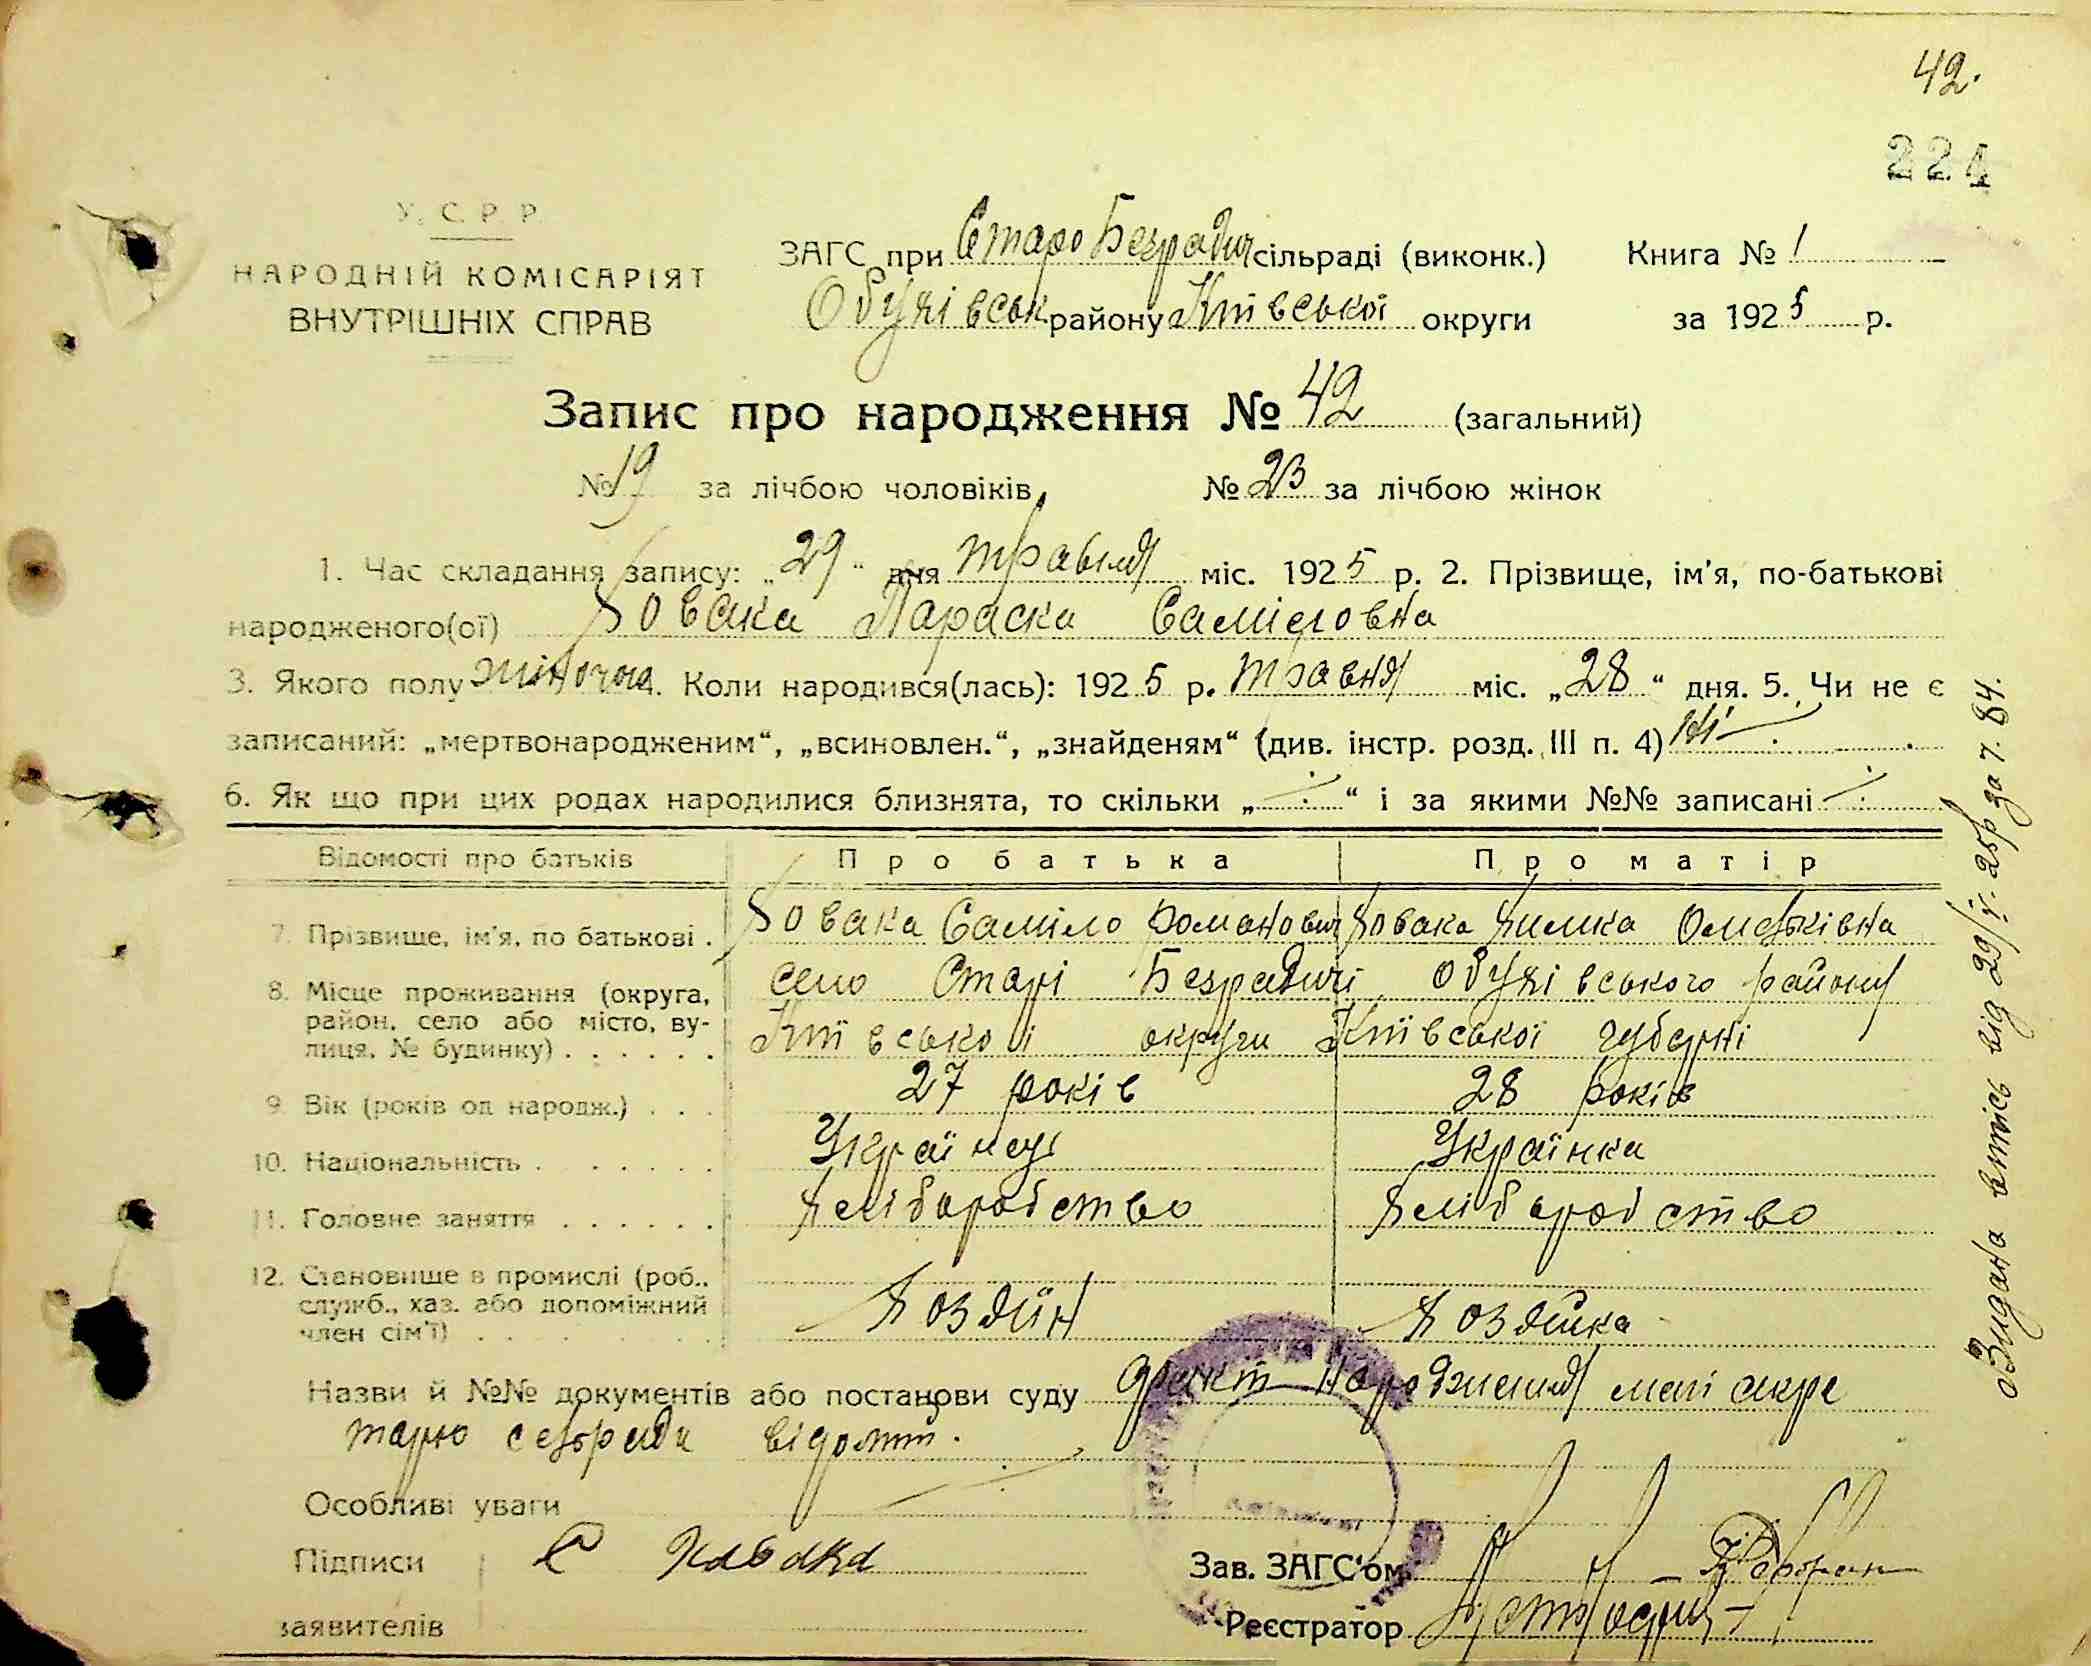 42.
224
У. С. Р. Р.
НАРОДНІЙ КОМІСАРІЯТ
ВНУТРІШНІХ СПРАВ
ЗАГС при Старо Безрадич сільраді (виконк.) Книга № 1
Обухівськ району Київської округи за 1925 р.
Запис про народження № 42 (загальний)
№ 19 за лічбою чоловіків, № 23 за лічбою жінок
1. Час складання запису: „29“ дня травня міс. 1925 р. 2. Прізвище, ім'я, по-батькові
народженого(ої) Ховака Параска Саміловна
3. Якого полу жіночого. Коли народився(лась): 1925 р. травня міс. „28“ дня. 5. Чи не є
записаний: „мертвонародженим“, „всиновлен.“, „знайденям“ (див. інстр. розд. III п. 4) ні
6. Як що при цих родах народилися близнята, то скільки „ “ і за якими №№ записані
Відомості про батьків Про батька Про матір
7. Прізвище, ім'я, по батькові . Ховака Саміло Романович Ховака Химка Омельківна
8. Місце проживання (округа, село Старі Безрадичі Обухівського району
район, село або місто, ву-
лиця, № будинку) . . . . . . Київської округи Київської губерні
9. Вік (років од народж.) . . . 27 років 28 років
10. Національність . . . . . . . Українец Українка
11. Головне заняття . . . . . . Хліборобство Хліборобство
12. Становище в промислі (роб.,
служб., хаз. або допоміжний
член сім'ї) . . . . . . . Хозяїн Хозяйка
Назви й №№ документів або постанови суду факт народження мені секре
тарю сельради відомий.
Особливі уваги
Підписи С Хавака Зав. ЗАГС'ом
заявителів Реєстратор
Видана витісь від 29/V. 25р за ч. 84.